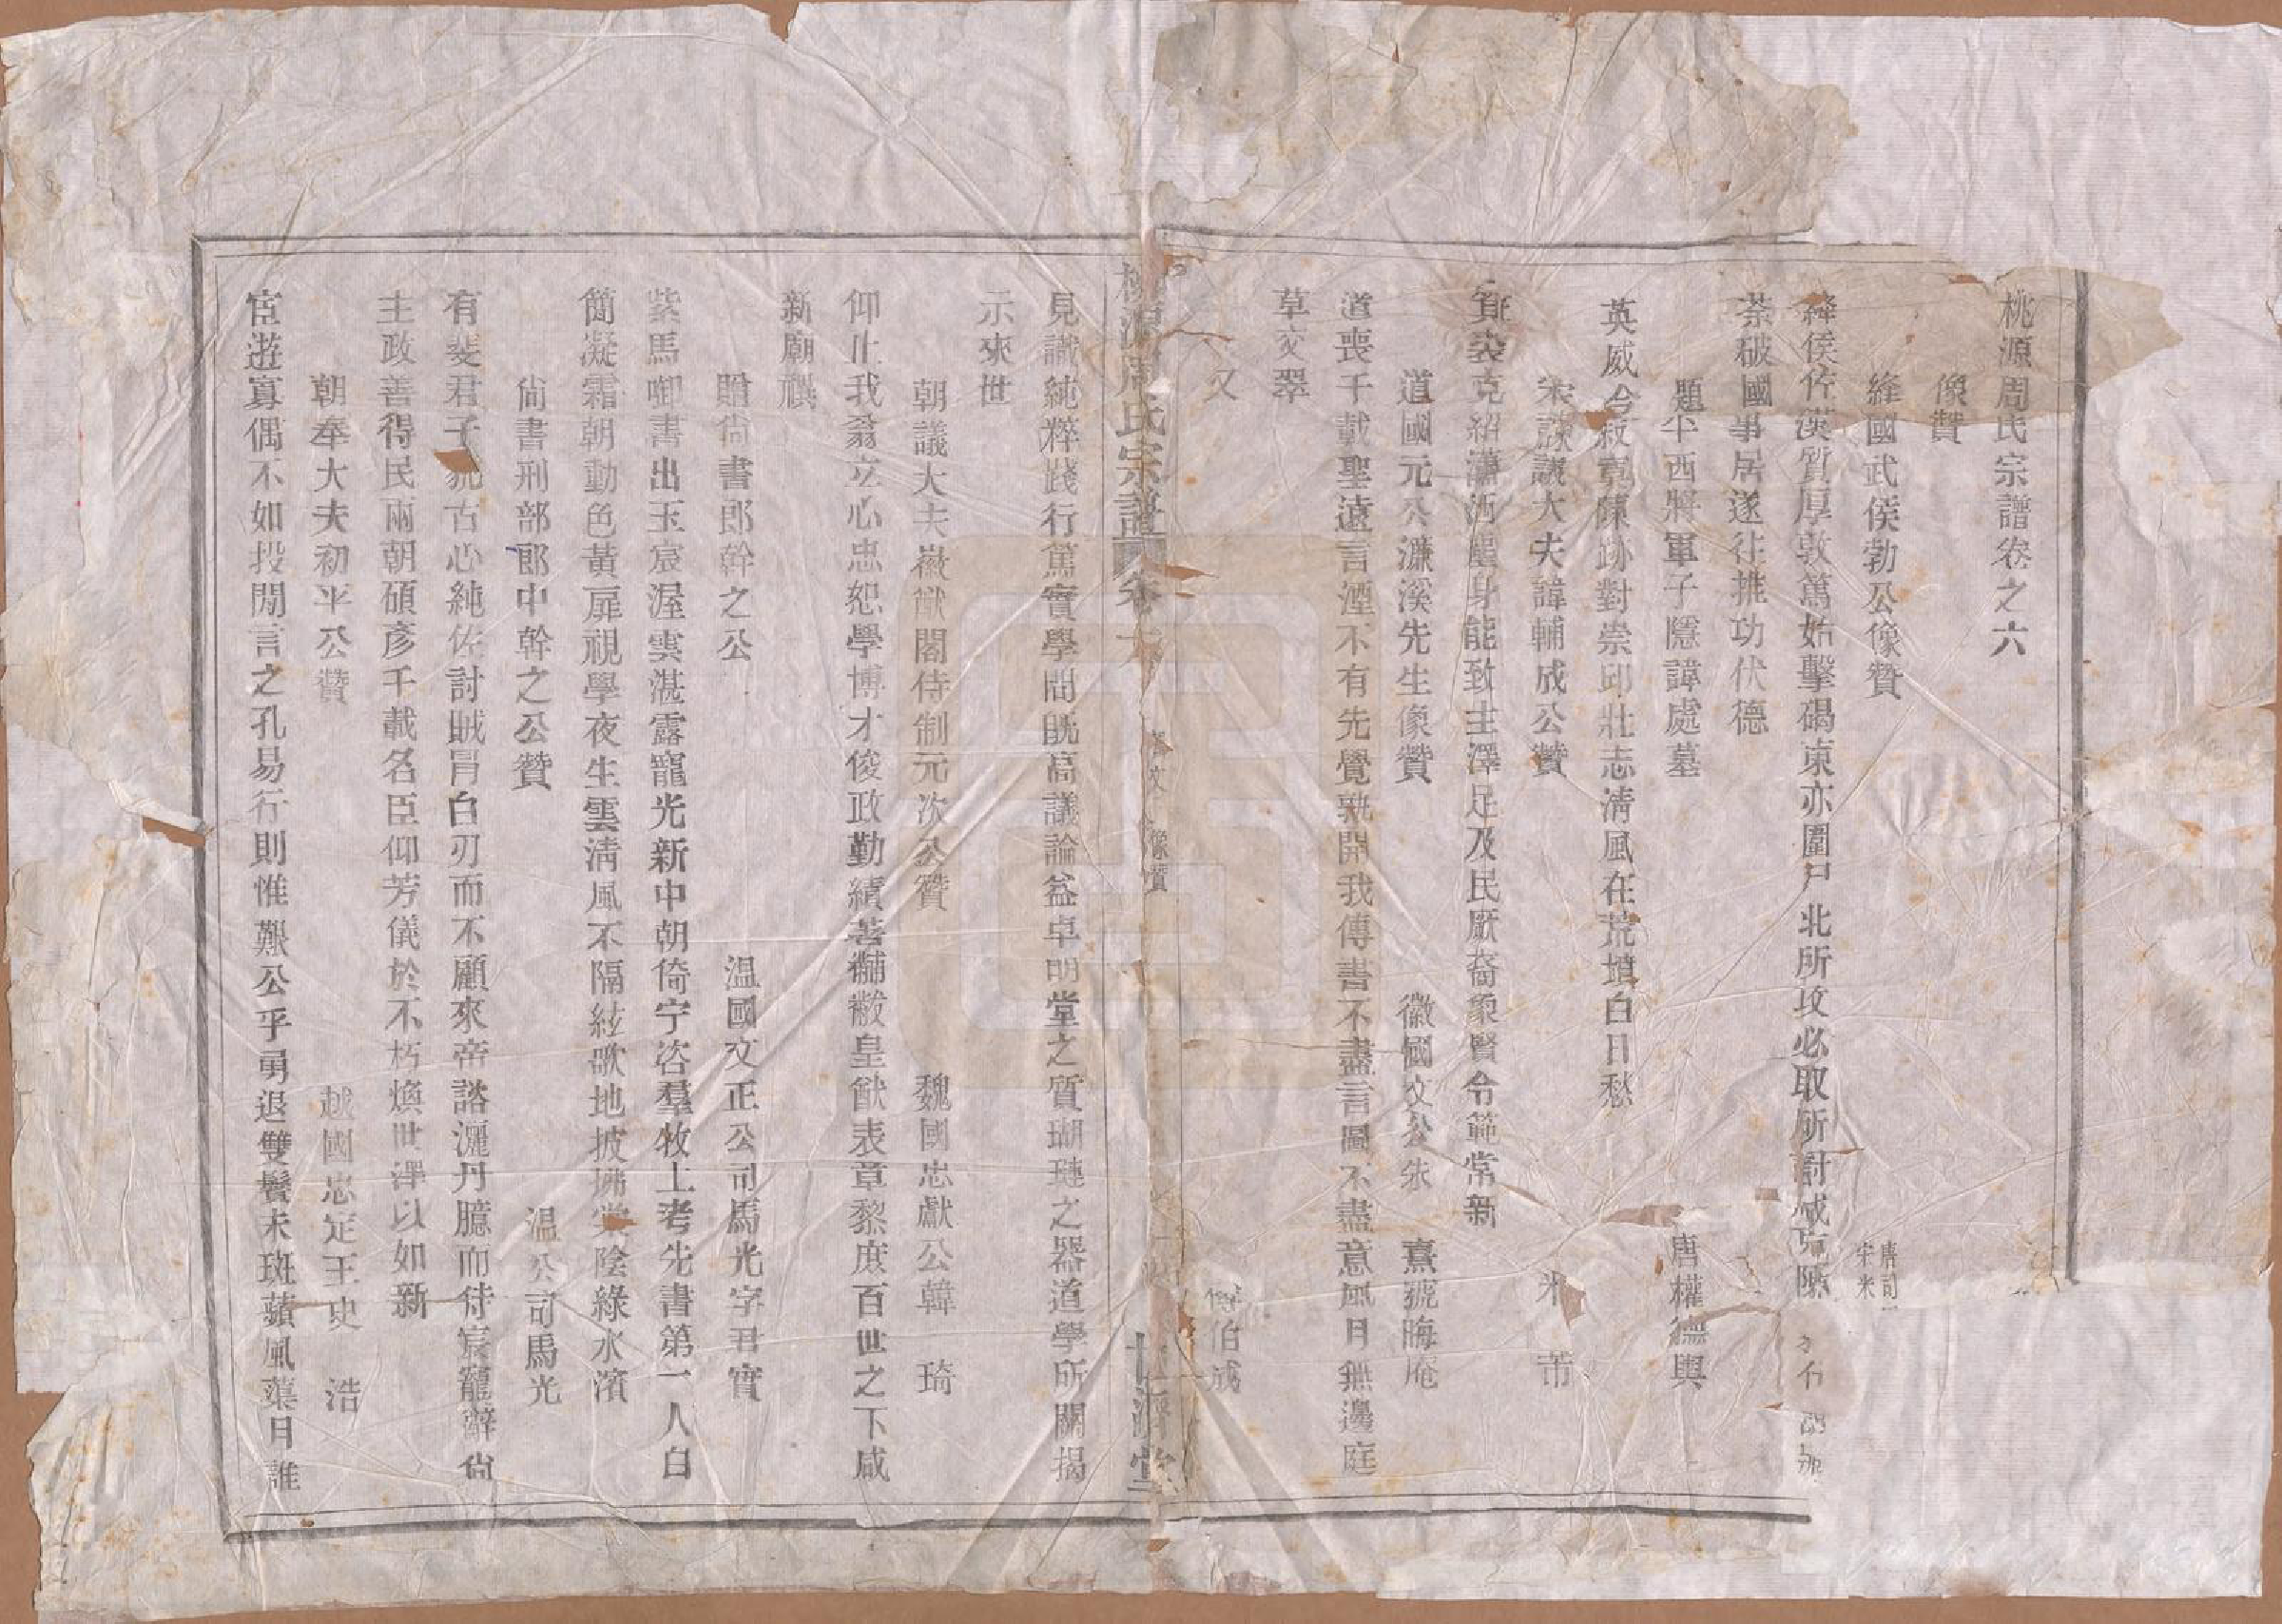 桃源周氏宗譜卷之六
像贊
絳國武侯勃公像贊
唐司
宋米
絳侯佐漢質厚敦篤始擊碭東亦圍尸北所攻必取所討咸克陳
荼破國事居遂往推功伏德
題平西將軍子隱諱處墓
唐權德輿
英威今寂寞陳跡對崇邱壯志清風在荒墳白日愁
宋諫議大夫諱輔成公贊
米芾
克紹瀟洒塵身能致主澤足及民厥裔象賢令範常新
道國元公濂溪先生像贊
徽國文公朱熹號晦庵
道喪千載聖遠言湮不有先覺孰開我傳書不盡言圖不盡意風月無邊庭
草交翠
又
伯成
桃源周氏宗譜 卷六
像贊
堂
見識純粹踐行篤實學問既高議論益卓明堂之質瑚璉之器道學所關揭
示來世
朝議大夫徽猷閣侍制元次公贊
魏國忠獻公韓琦
仰止我翁立心忠恕學博才俊政勤績著黼黻皇猷表章黎庶百世之下咸
新廟禩
贈尚書郎幹之公
温國文正公司馬光字君實
紫馬啣書出玉宸渥雲湛露寵光新中朝倚宁咨羣牧上考先書第一人白
簡凝霜朝動色黃扉視學夜生雲清風不隔絃歌地披拂棠陰綠水濱
尚書刑部郎中幹之公贊
温公司馬光
有斐君子貌古心純佐討賊冐白刃而不顧來帝諮灑丹臆而侍宸寵辭尙
主政善得民兩朝碩彥千載名臣仰芳儀於不朽煥世澤以如新
朝奉大夫初平公贊
越國忠定王史浩
宦遊寡偶不如投閒言之孔易行則惟艱公乎勇退雙鬢未斑蘋風蕖月誰